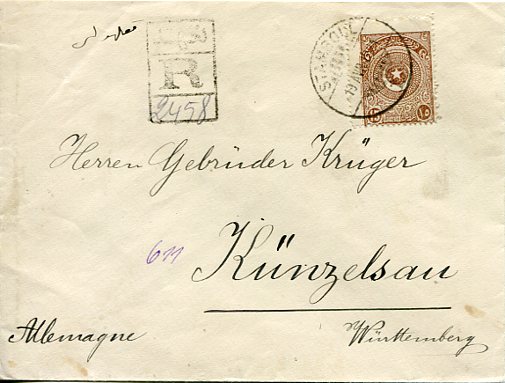 R
2458
STAMBOUL
١٥
Herren Gebrüder Krüger
611
Künzelsau
Allemagne
Württemberg